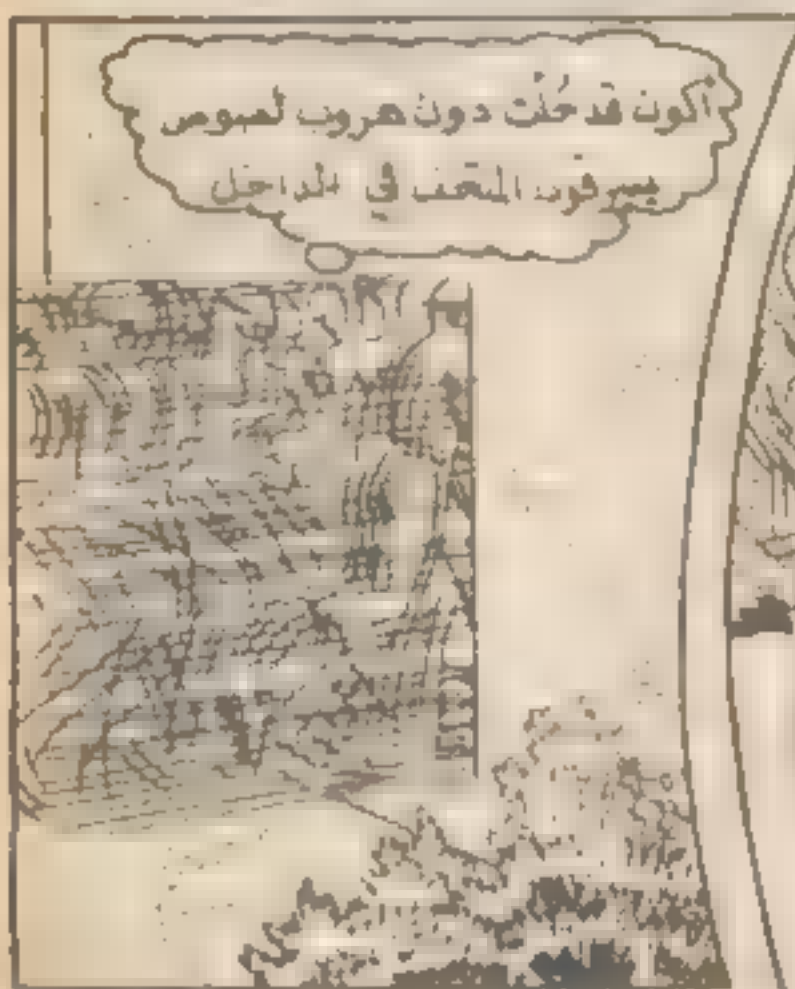 أكون قد حُلْت دون هروب لصوص
يسرقون المتحف في الداخل